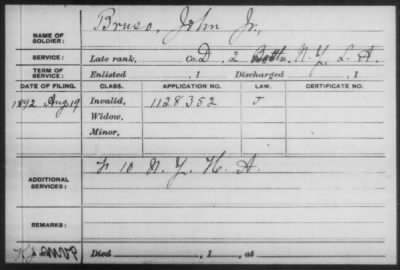 NAME OF SOLDIER: Bruso, John Jr.,
SERVICE: Late rank, Co. D, 2 Batt. N.Y. L. A.
TERM OF SERVICE: Enlisted , 1 Discharged , 1
DATE OF FILING. CLASS. APPLICATION NO. LAW. CERTIFICATE NO.
1892 Aug. 19 Invalid, 1128352 J
Widow,
Minor,
ADDITIONAL SERVICES: F 10 N.Y. H. A.
REMARKS:
Died , 1 , at